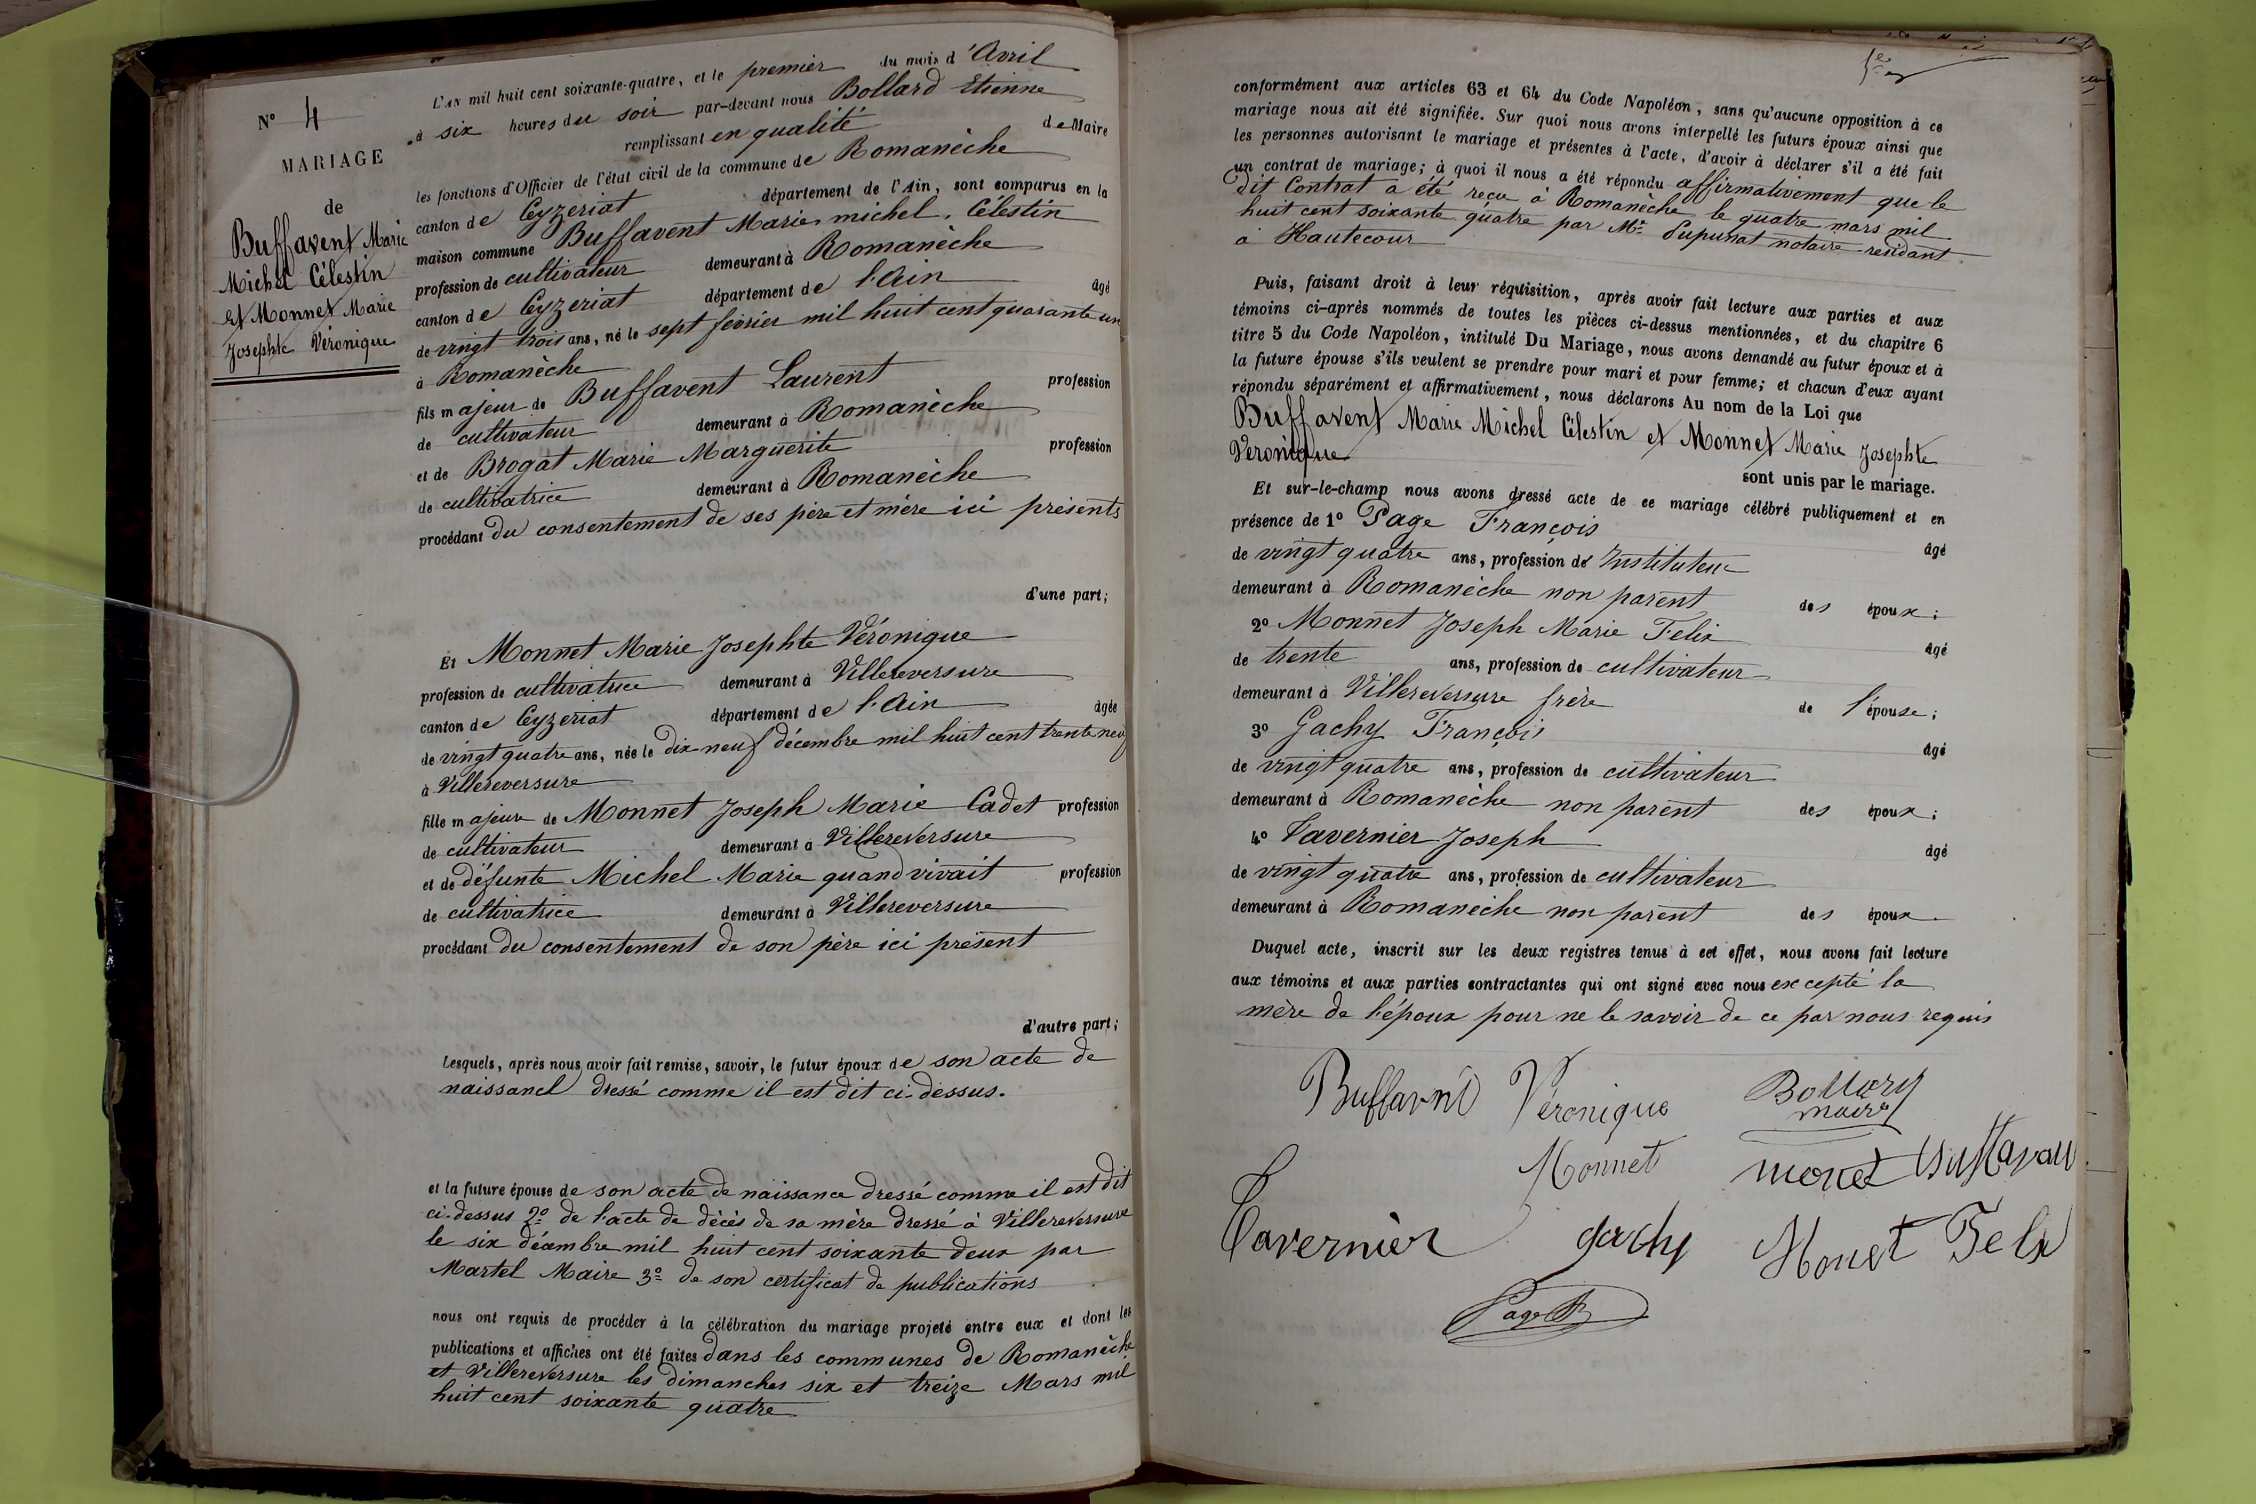 N° 4
MARIAGE
de
Buffavent Marie
Michel Célestin
et Monnet Marie
Josephte Véronique
L'AN mil huit cent soixante-quatre, et le premier du mois d'Avril
à six heures du soir par-devant nous Bollard Etienne
remplissant en qualité de Maire
les fonctions d'Officier de l'état civil de la commune de Romanèche
canton de Ceyzeriat département de l'Ain, sont comparus en la
maison commune Buffavent Marie, michel, Célestin
profession de cultivateur demeurant à Romanèche
canton de Ceyzeriat département de l'Ain âgé
de vingt trois ans, né le sept février mil huit cent quarante un
à Romanèche
fils majeur de Buffavent Laurent profession
de cultivateur demeurant à Romanèche
et de Brogat Marie Marguerite profession
de cultivatrice demeurant à Romanèche
procédant du consentement de ses père et mère ici présents
d'une part;
Et Monnet Marie Josephte Véronique
profession de cultivatrice demeurant à Villereversure
canton de Ceyzeriat département de l'Ain âgée
de vingt quatre ans, née le dix-neuf décembre mil huit cent trente neuf
à Villereversure
fille majeure de Monnet Joseph Marie Cadet profession
de cultivateur demeurant à Villereversure
et de défunte Michel Marie quand vivait profession
de cultivatrice demeurant à Villereversure
procédant du consentement de son père ici présent
d'autre part;
Lesquels, après nous avoir fait remise, savoir, le futur époux de son acte de
naissance dressé comme il est dit ci-dessus.
et la future épouse de son acte de naissance dressé comme il est dit
ci-dessus 2° de l'acte de décès de sa mère dressé à Villereversure
le six décembre mil huit cent soixante deux par
Martel Maire 3° de son certificat de publications
nous ont requis de procéder à la célébration du mariage projeté entre eux et dont les
publications et affiches ont été faites dans les communes de Romanèche
et Villereversure les dimanches six et treize Mars mil
huit cent soixante quatre
conformément aux articles 63 et 64 du Code Napoléon, sans qu'aucune opposition à ce
mariage nous ait été signifiée. Sur quoi nous avons interpellé les futurs époux ainsi que
les personnes autorisant le mariage et présentes à l'acte, d'avoir à déclarer s'il a été fait
un contrat de mariage; à quoi il nous a été répondu affirmativement que le
dit Contrat a été reçu à Romanèche le quatre mars mil
huit cent soixante quatre par Mr notaire residant
à Hautecour
Puis, faisant droit à leur réquisition, après avoir fait lecture aux parties et aux
témoins ci-après nommés de toutes les pièces ci-dessus mentionnées, et du chapitre 6
titre 5 du Code Napoléon, intitulé Du Mariage, nous avons demandé au futur époux et à
la future épouse s'ils veulent se prendre pour mari et pour femme; et chacun d'eux ayant
répondu séparément et affirmativement, nous déclarons Au nom de la Loi que
Buffavent Marie Michel Célestin et Monnet Marie Josephte
Véronique
sont unis par le mariage.
Et sur-le-champ nous avons dressé acte de ce mariage célébré publiquement et en
présence de 1° Page François âgé
de vingt quatre ans, profession de Instituteur
demeurant à Romanèche non parent des époux;
2° Monnet Joseph Marie Felix âgé
de trente ans, profession de cultivateur
demeurant à Villereversure frère de l'épouse;
3° Gachy François âgé
de vingt quatre ans, profession de cultivateur
demeurant à Romanèche non parent des époux;
4° Tavernier Joseph âgé
de vingt quatre ans, profession de cultivateur
demeurant à Romanèche non parent des époux
Duquel acte, inscrit sur les deux registres tenus à cet effet, nous avons fait lecture
aux témoins et aux parties contractantes qui ont signé avec nous excepté la
mère de l'époux pour ne le savoir de ce par nous requis
Buffavnt Véronique Bollard
maire
Monnet monet Buffavau
Tavernier gachy Monet Felix
Page F